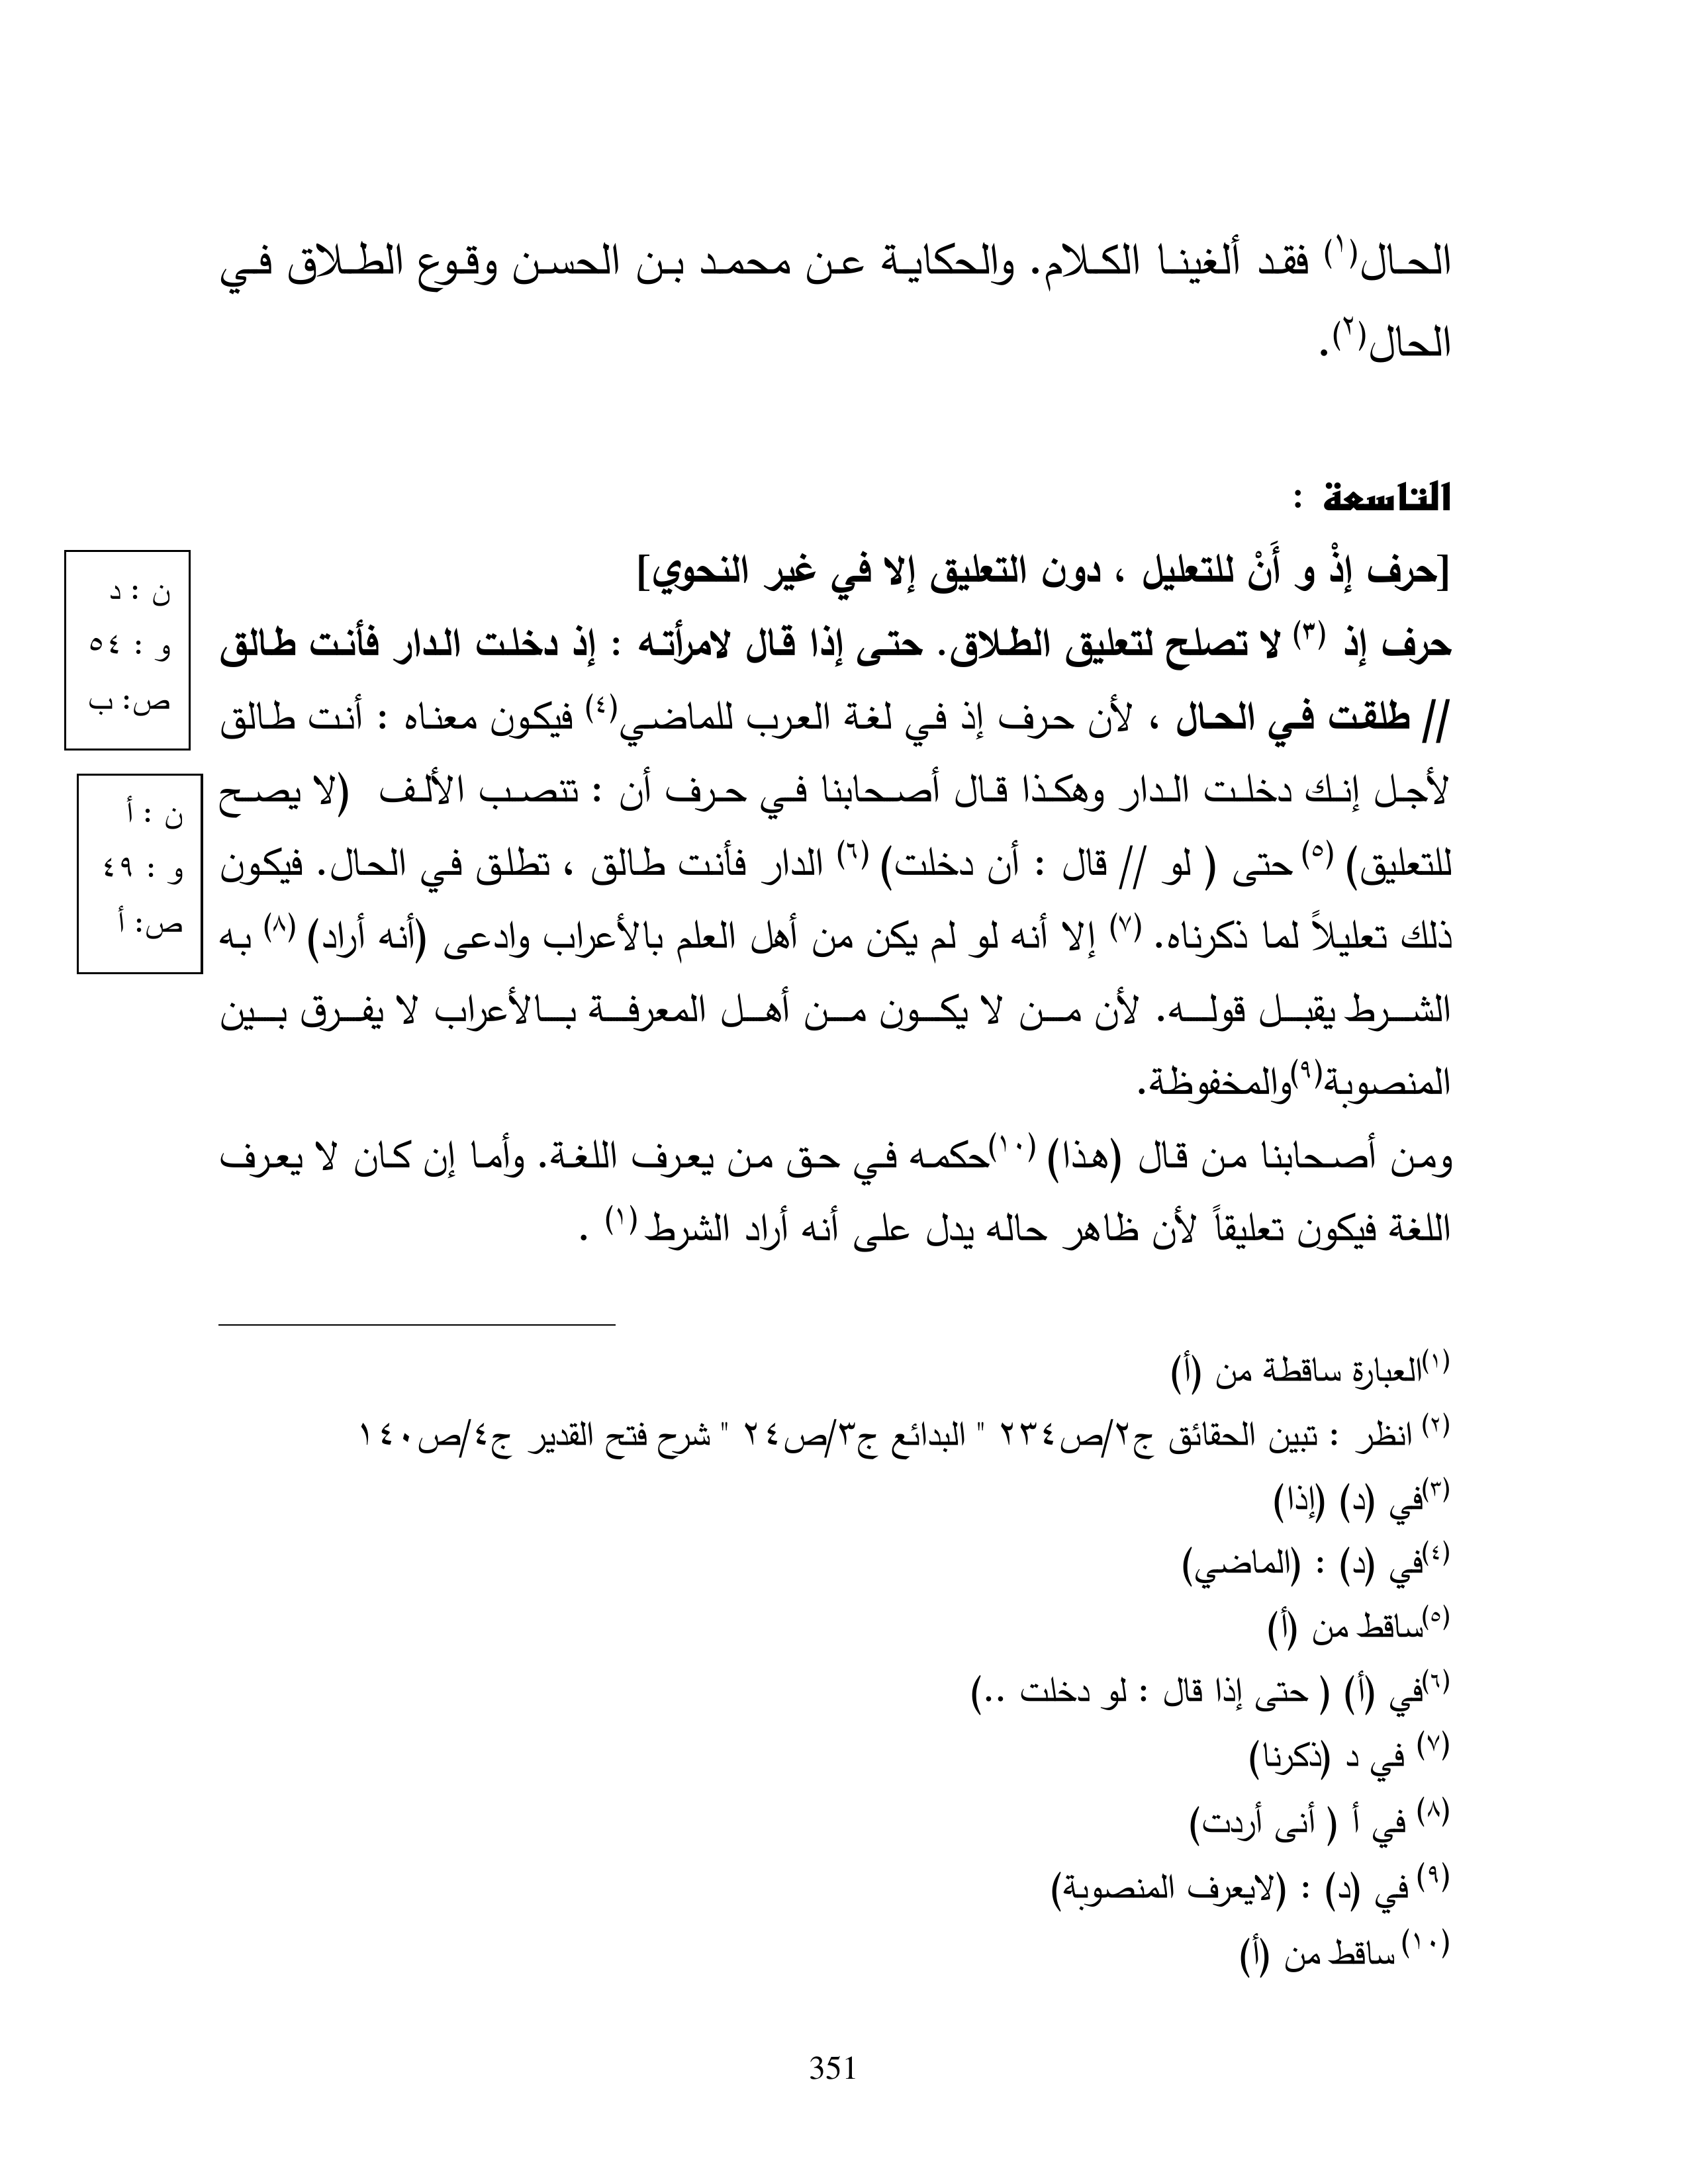 الحال(١) فقد ألغينا الكلام. والحكاية عن محمد بن الحسن وقوع الطلاق في
الحال(٢).
التاسعة :
[حرف إذْ و أَنْ للتعليل ، دون التعليق إلا في غير النحوي]
حرف إذ (٣) لا تصلح لتعليق الطلاق. حتى إذا قال لامرأته : إذ دخلت الدار فأنت طالق
// طلقت في الحال ، لأن حرف إذ في لغة العرب للماضي(٤) فيكون معناه : أنت طالق
لأجل إنك دخلت الدار وهكذا قال أصحابنا في حرف أن : تنصب الألف (لا يصح
للتعليق) (٥) حتى ( لو // قال : أن دخلت) (٦) الدار فأنت طالق ، تطلق في الحال. فيكون
ذلك تعليلاً لما ذكرناه. (٧) إلا أنه لو لم يكن من أهل العلم بالأعراب وادعى (أنه أراد) (٨) به
الشرط يقبل قوله. لأن من لا يكون من أهل المعرفة بالأعراب لا يفرق بين
المنصوبة(٩)والمخفوظة.
ومن أصحابنا من قال (هذا) (١٠)حكمه في حق من يعرف اللغة. وأما إن كان لا يعرف
اللغة فيكون تعليقاً لأن ظاهر حاله يدل على أنه أراد الشرط (١) .
ن : د
و : ٥٤
ص: ب
ن : أ
و : ٤٩
ص: أ
(١)العبارة ساقطة من (أ)
(٢) انظر : تبين الحقائق ج٢/ص٢٣٤ " البدائع ج٣/ص٢٤ " شرح فتح القدير ج٤/ص١٤٠
(٣)في (د) (إذا)
(٤)في (د) : (الماضي)
(٥)ساقط من (أ)
(٦)في (أ) ( حتى إذا قال : لو دخلت ..)
(٧) في د (ذكرنا)
(٨) في أ ( أنى أردت)
(٩) في (د) : (لايعرف المنصوبة)
(١٠) ساقط من (أ)
351